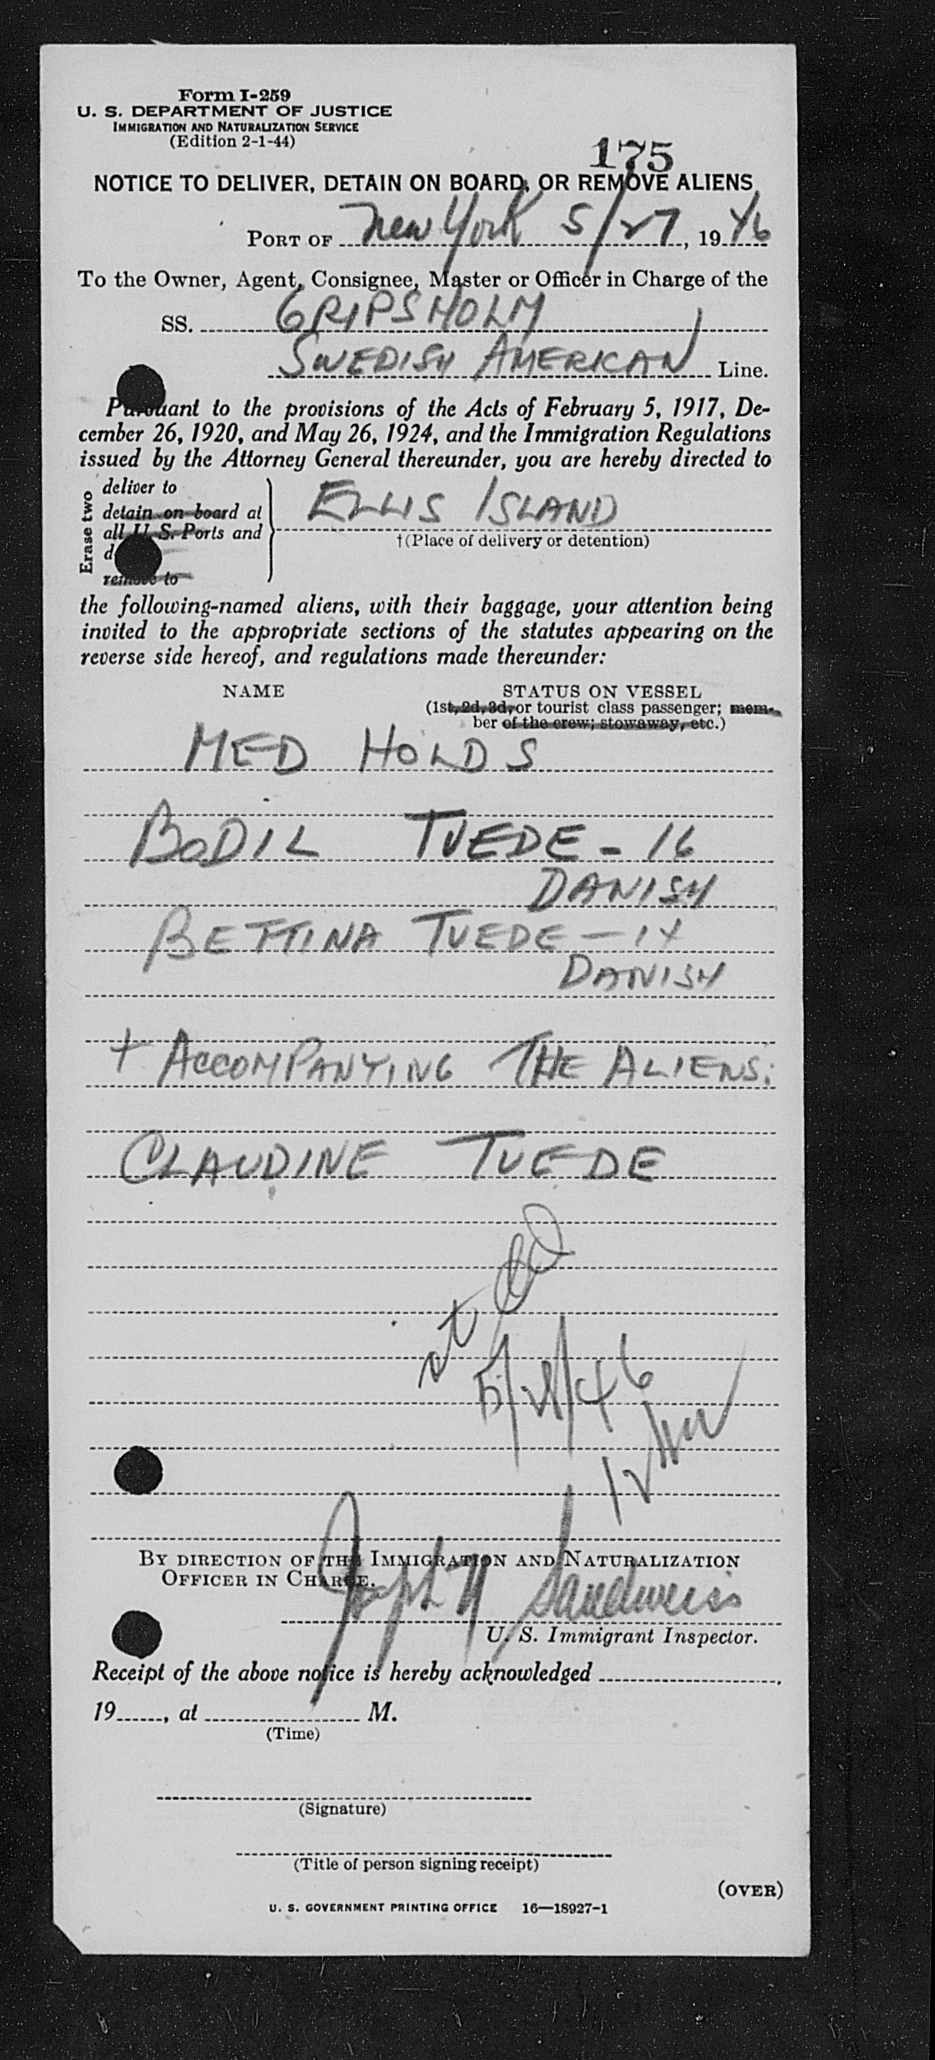 Form I-259
U. S. DEPARTMENT OF JUSTICE
IMMIGRATION AND NATURALIZATION SERVICE
(Edition 2-1-44)
175
NOTICE TO DELIVER, DETAIN ON BOARD, OR REMOVE ALIENS
PORT OF New York 5/27, 1946
To the Owner, Agent, Consignee, Master or Officer in Charge of the
SS. GRIPSHOLM
SWEDISH AMERICAN Line.
Pursuant to the provisions of the Acts of February 5, 1917, De-
cember 26, 1920, and May 26, 1924, and the Immigration Regulations
issued by the Attorney General thereunder, you are hereby directed to
Erase two
deliver to
detain on board at
all U. S. Ports and
remove to
ELLIS ISLAND
†(Place of delivery or detention)
the following-named aliens, with their baggage, your attention being
invited to the appropriate sections of the statutes appearing on the
reverse side hereof, and regulations made thereunder:
NAME STATUS ON VESSEL
(1st, 2d, 3d, or tourist class passenger; mem-
ber of the crew; stowaway, etc.)
MED HOLDS
BODIL TVEDE - 16
DANISH
BETTINA TVEDE - 14
DANISH
+ ACCOMPANYING THE ALIENS:
CLAUDINE TVEDE
5/28/46
BY DIRECTION OF THE IMMIGRATION AND NATURALIZATION
OFFICER IN CHARGE.
Joseph H Sandweiss
U. S. Immigrant Inspector.
Receipt of the above notice is hereby acknowledged
19, at M.
(Time)
(Signature)
(Title of person signing receipt)
(OVER)
U. S. GOVERNMENT PRINTING OFFICE 16—18927-1